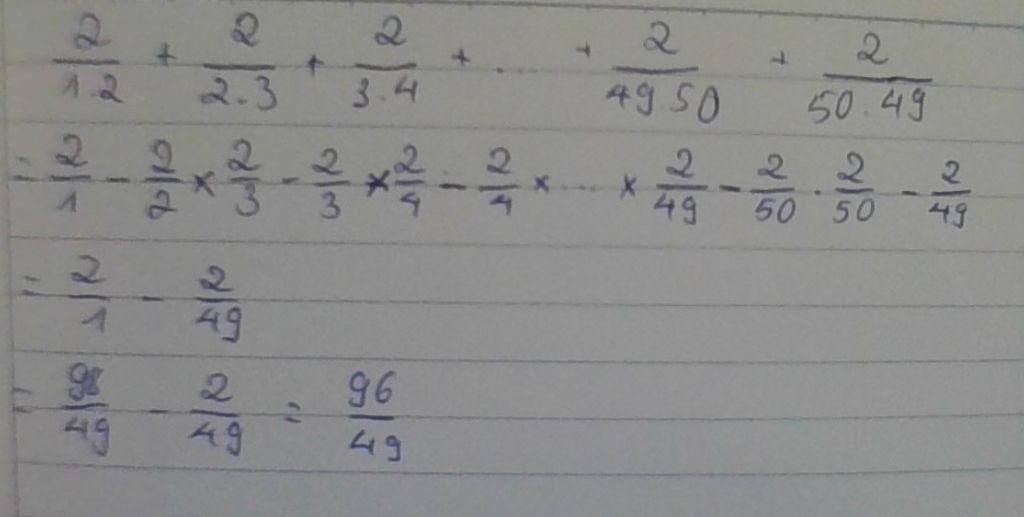 2/1.2 + 2/2.3 + 2/3.4 + .... + 2/49 50 + 2/50.49
= 2/1 - 2/2 × 2/3 - 2/3 × 2/4 - 2/4 × ... × 2/49 - 2/50 . 2/50 - 2/49
= 2/1 - 2/49
= 98/49 - 2/49 = 96/49